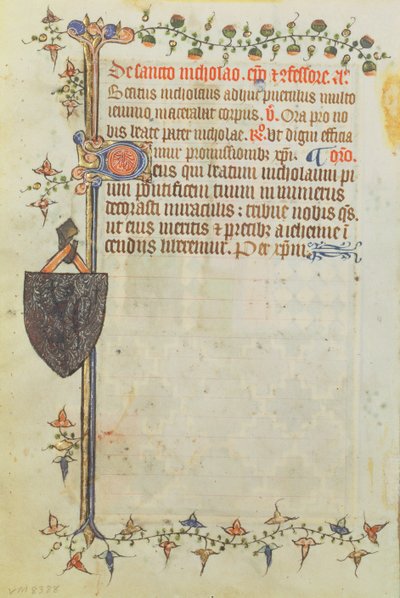 De sancto nicholao. epo et ꝯfessore. añ.
Beatus nicholaus adhuc puerulus multo
ieiunio macerabat corpus. V̄. Ora pro no
bis beate pater nicholae. R̄. Ut digni efficia
mur promissionibꝫ xp̄i. Oro.
Deus qui beatum nicholaum pi
um pontificem tuum innumeris
decorasti miraculis : tribue nobis qs̄.
ut eius meritis et precibꝫ a iehenne ī
cendiis liberemur. Per xp̄m
VM 8388